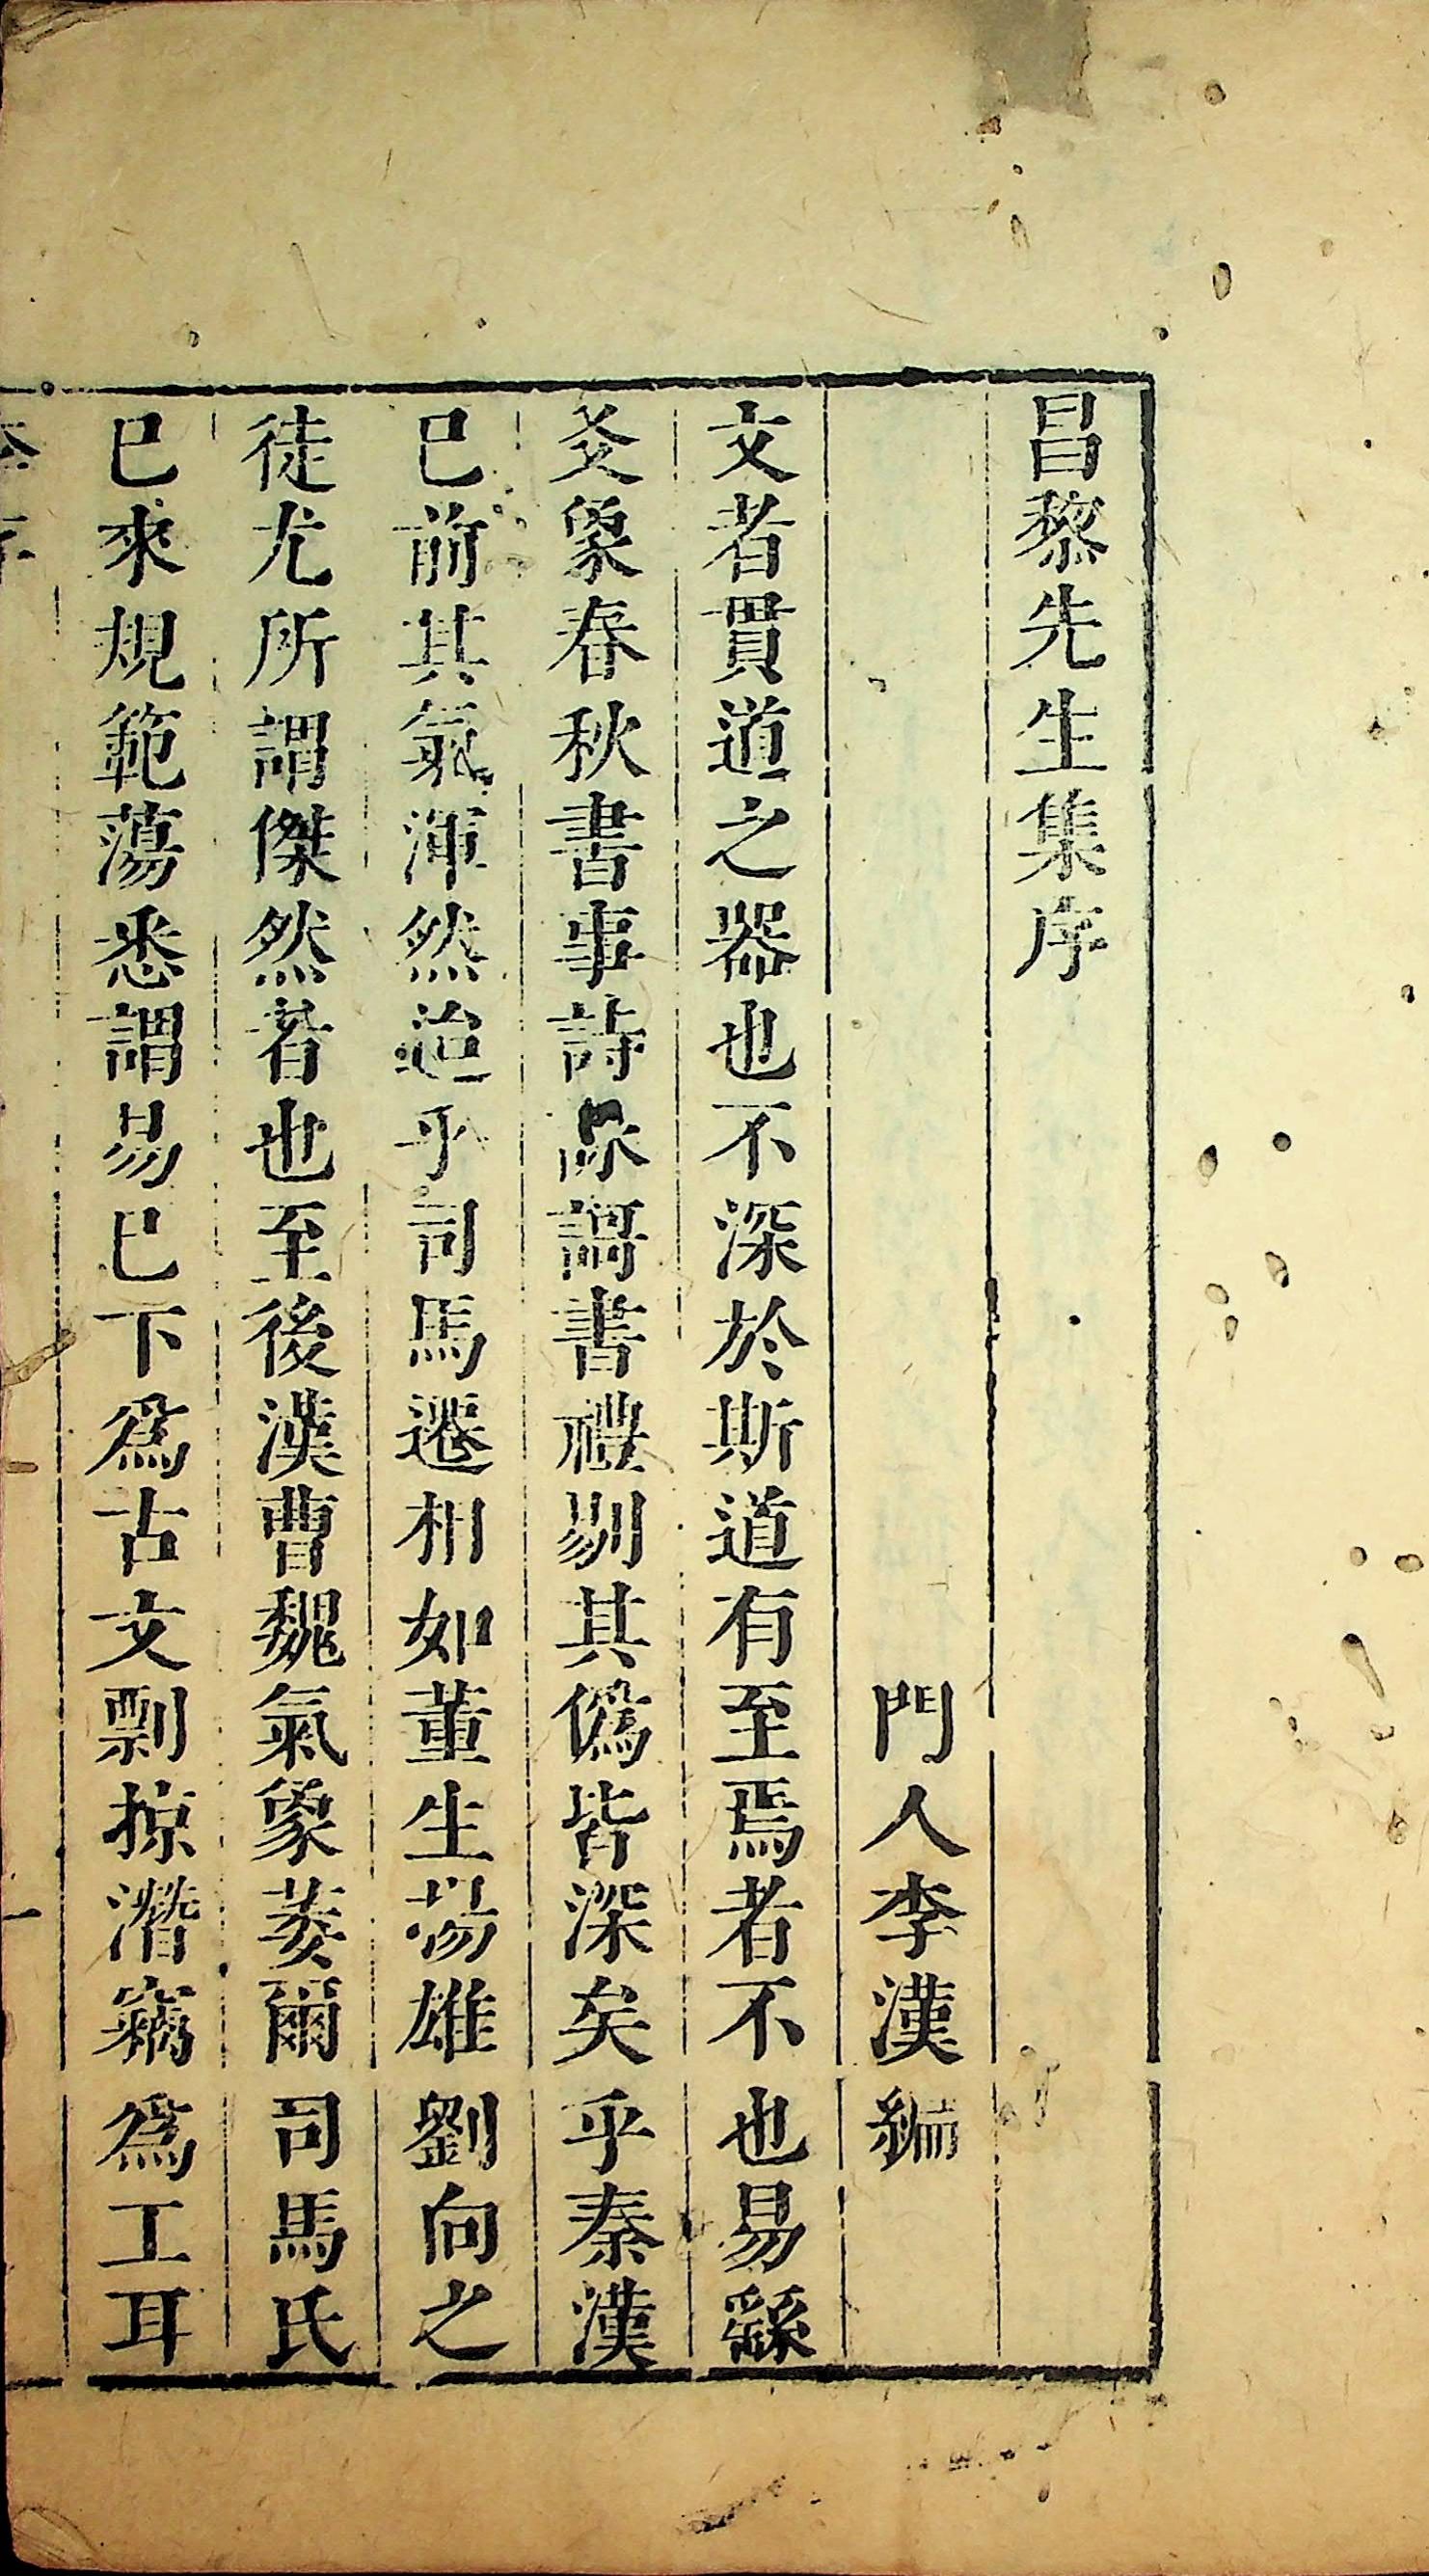 昌黎先生集序
門人李漢編
文者貫道之器也不深於斯道有至焉者不也易繇
爻象春秋書事詩詠謌書禮剔其僞皆深矣乎秦漢
已前其氣渾然迨乎司馬遷相如董生揚雄劉向之
徒尤所謂傑然者也至後漢曹魏氣象萎爾司馬氏
已來規範蕩悉謂易已下爲古文剽掠潛竊爲工耳
一